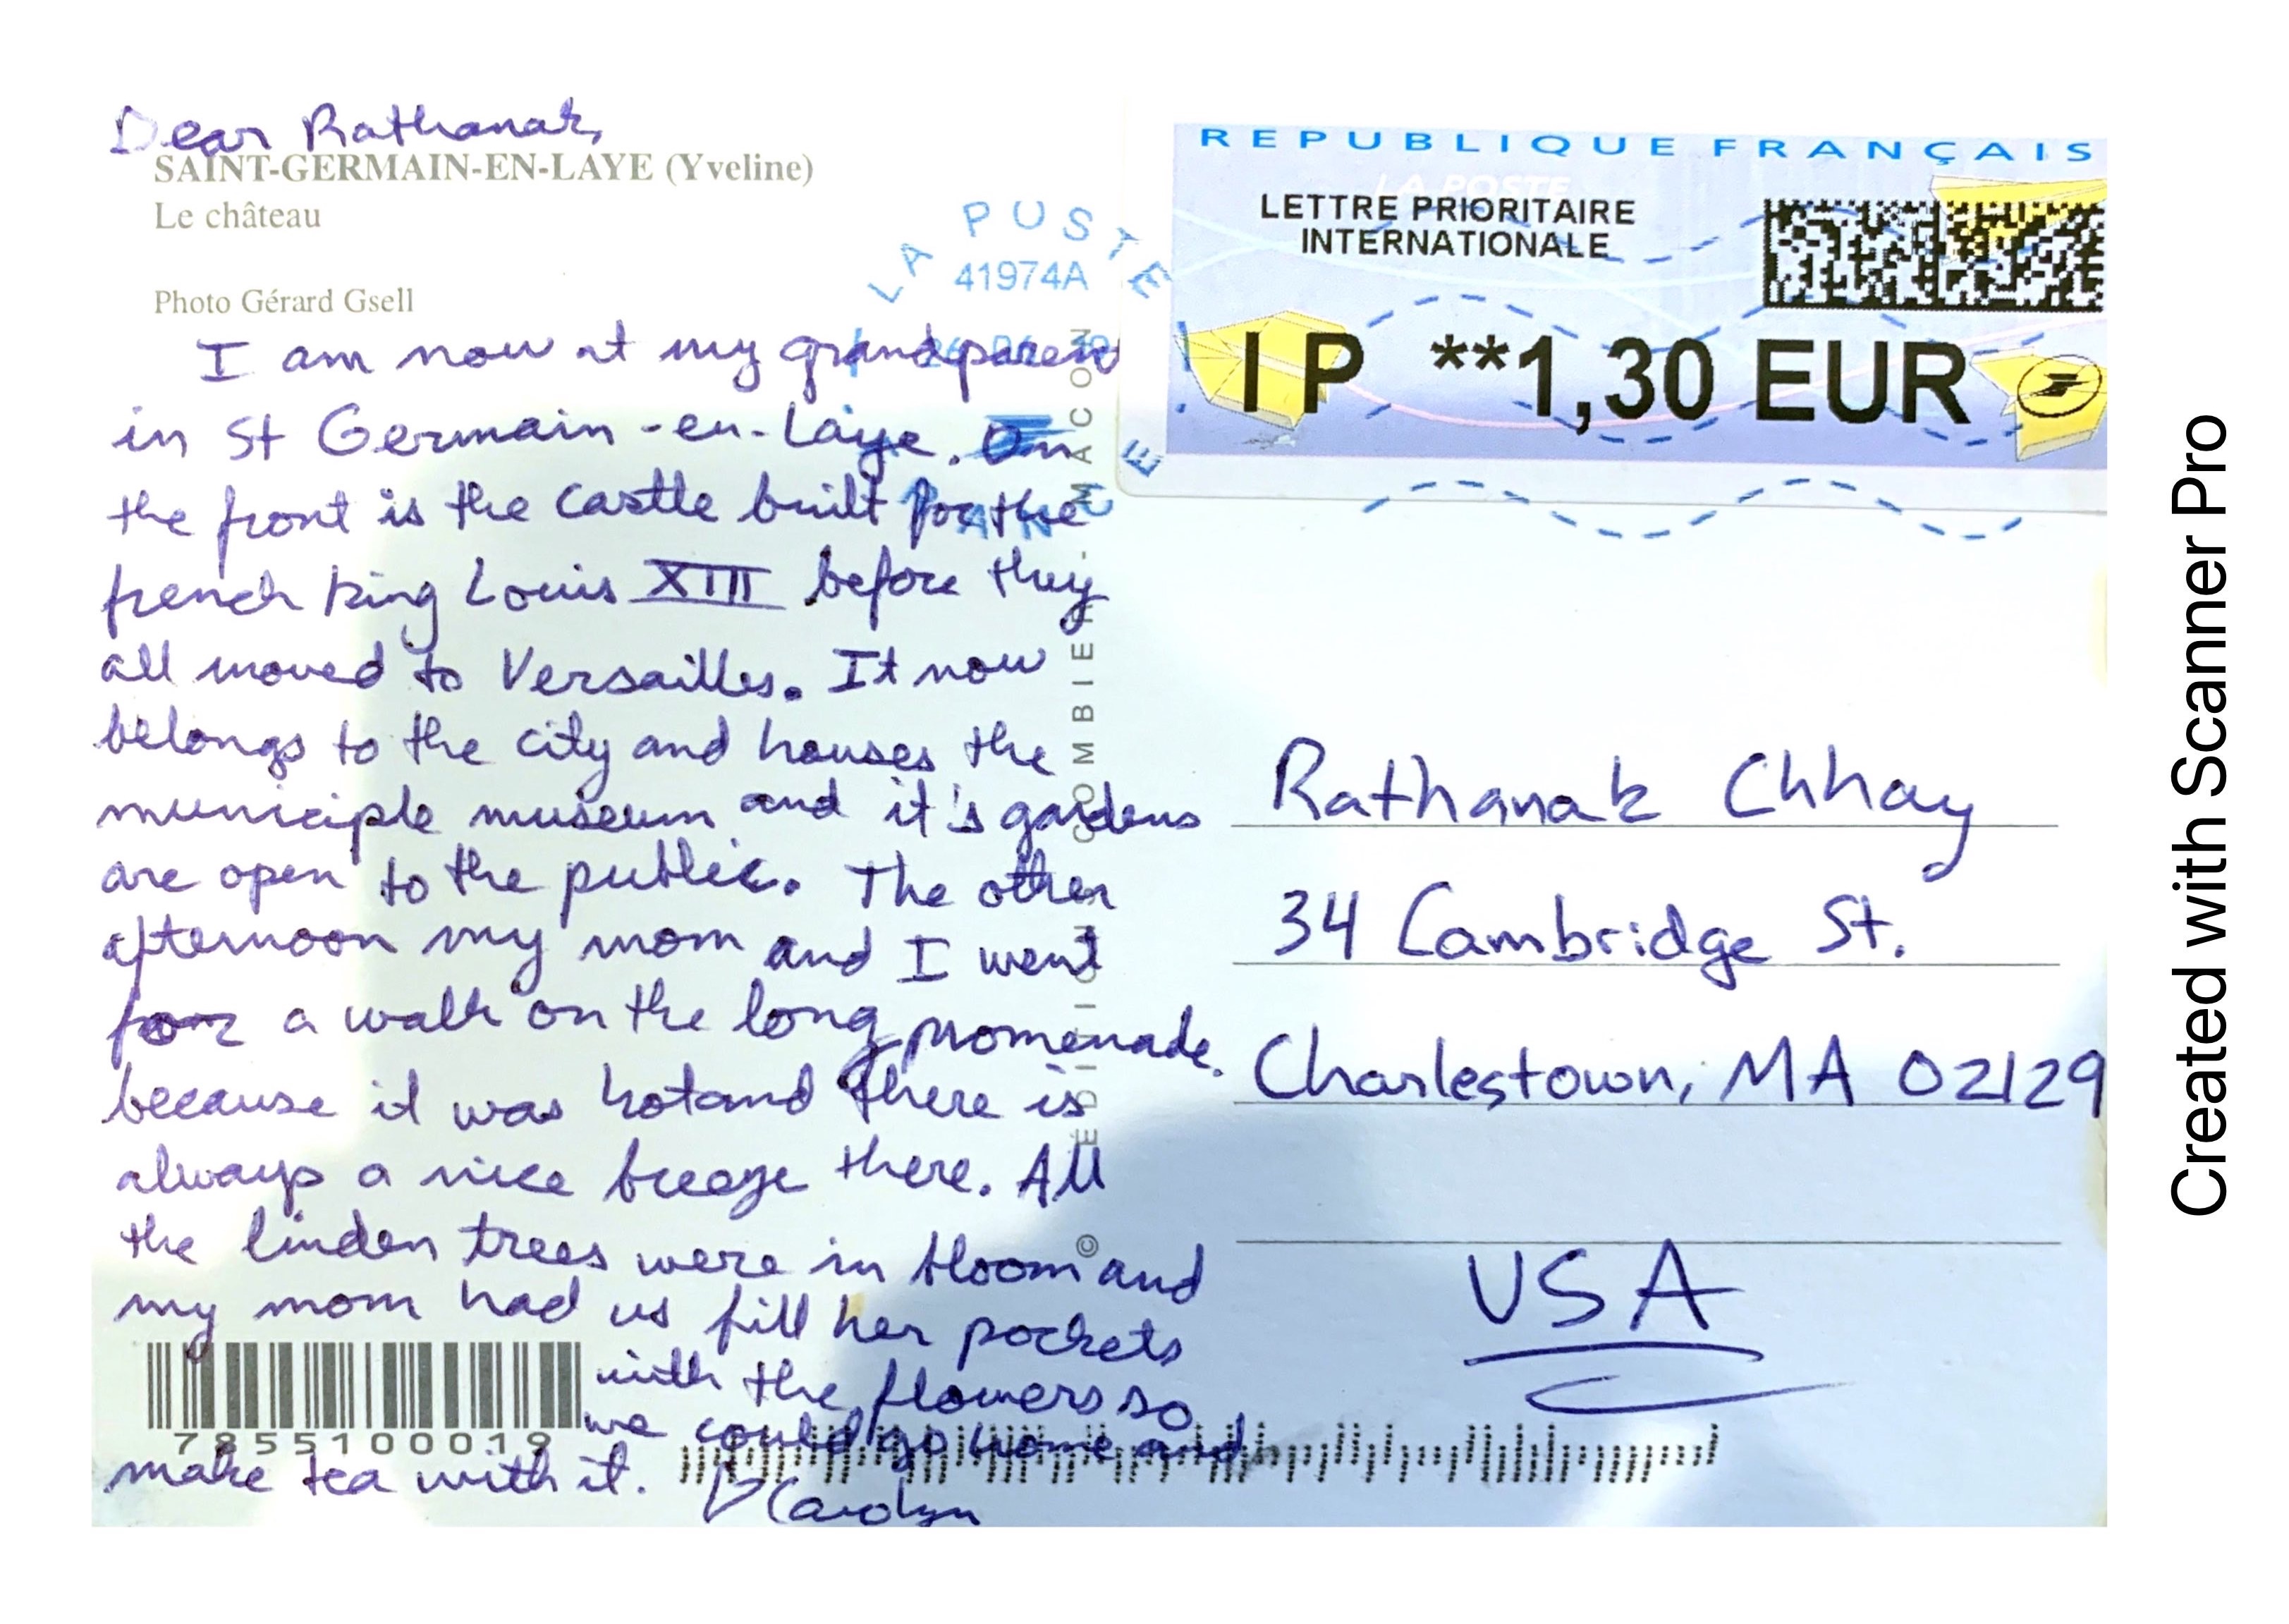 Dear Rathanak,
SAINT-GERMAIN-EN-LAYE (Yveline)
Le château
Photo Gérard Gsell
I am now at my grandparent
in St Germain-en-Laye. On
the front is the castle built for the
french king Louis XIII before they
all moved to Versailles. It now
belongs to the city and houses the
municiple museum and it's gardens
are open to the public. The other
afternoon my mom and I went
for a walk on the long promenade.
because it was hot and there is
always a nice breeze there. All
the linden trees were in bloom and
my mom had us fill her pockets
with the flowers so
we could go home and
make tea with it.
Carolyn
7855100019
ÉDITION COMBIER - MACON
©
LA POSTE
41974A
FRANCE
REPUBLIQUE FRANÇAIS
LA POSTE
LETTRE PRIORITAIRE
INTERNATIONALE
IP **1,30 EUR
Rathanak Chhay
34 Cambridge St.
Charlestown, MA 02129
USA
Created with Scanner Pro